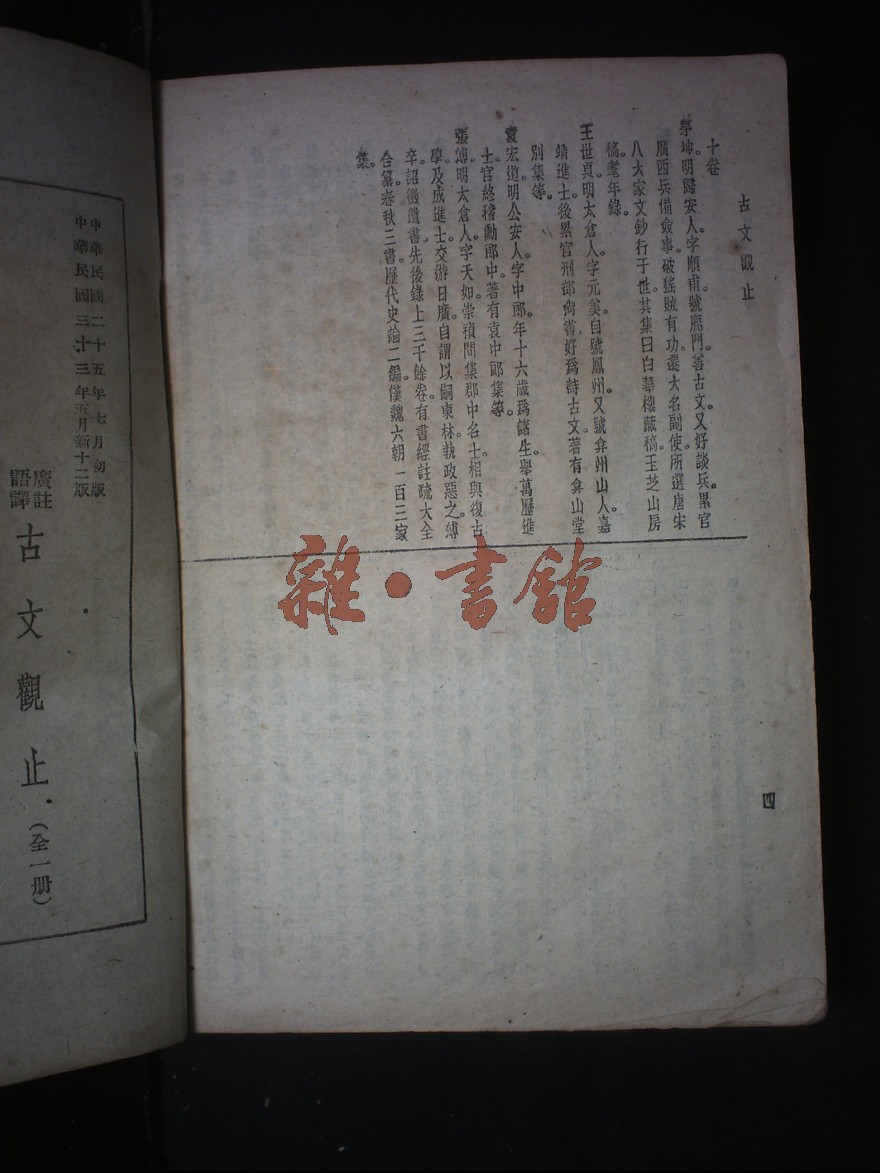 古文觀止
十卷
茅坤。明歸安人。字順甫。號鹿門。善古文。又好談兵。累官
廣西兵備僉事。破猺賊有功。遷大名副使。所選唐宋
八大家文鈔行于世。其集曰白華樓藏稿。玉芝山房
稿。耄年錄。
王世貞。明太倉人。字元美。自號鳳州。又號弇州山人。嘉
靖進士。後累官刑部尙書。好爲詩古文。著有弇山堂
別集等。
袁宏道。明公安人。字中郎。年十六歲爲諸生。舉萬歷進
士。官終稽勳郎中。著有袁中郎集等。
張溥。明太倉人。字天如。崇禎間集郡中名士。相與復古
學。及成進士。交游日廣。自謂以嗣東林。執政惡之。溥
卒。詔徵遺書。先後錄上三千餘卷。有書經註疏大全
合纂。春秋三書。歷代史論二編。漢魏六朝一百三家
集。
四
中華民國二十五年七月初版
中華民國三十三年五月新十二版
廣註
語譯
古文觀止(全一册)
雜·書館